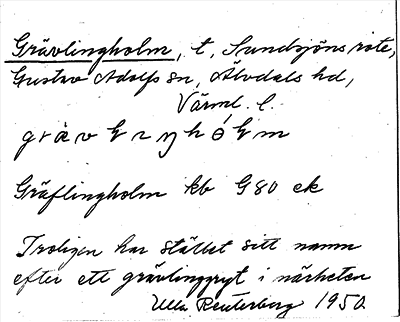 Grävlingholm, t, Sundsjöns rote,
Gustav Adolfs sn, Älvdals hd,
Värml. l.
Gräflingholm kb G80 ek
Troligen har stället sitt namn
efter ett grävlingryt i närheten
Ulla Reuterborg 1950